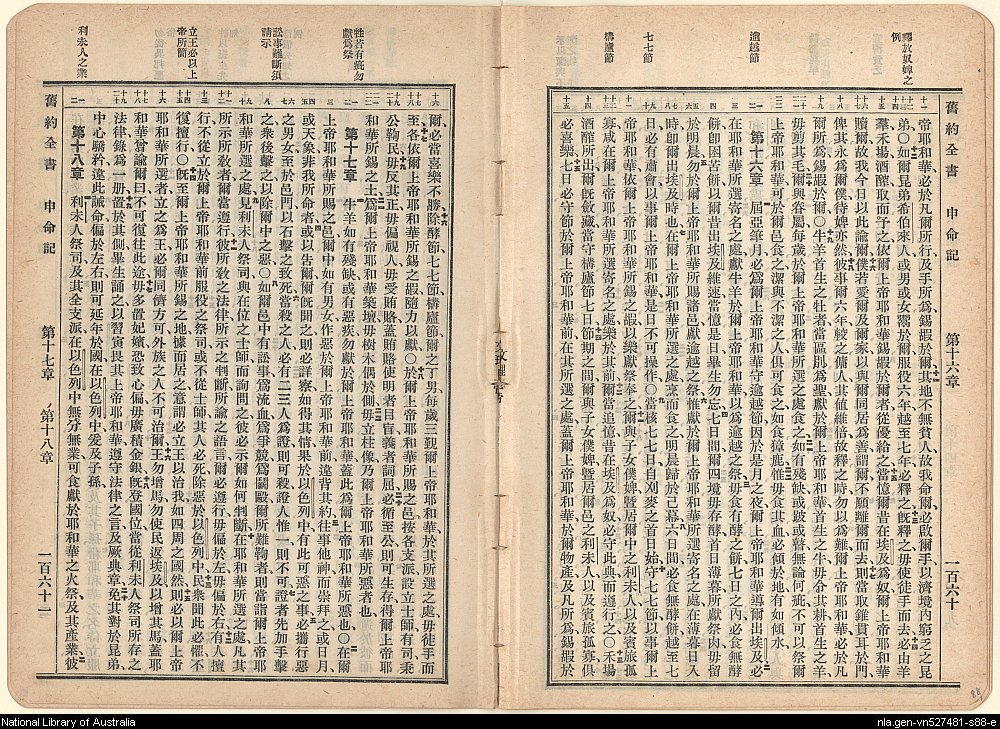 釋放奴婢之
例
逾越節
七七節
構廬節
舊約全書 申命記 第十六章 一百六十
帝耶和華必於凡爾所行及手所爲錫嘏於爾、其地不無貧人、故我命爾必啟爾手、以濟境內窮乏之昆
弟、〇如爾昆弟希伯來人、或男或女、鬻於爾、服役六年、越至七年必釋之、旣釋之、毋使徒手而去、必由羊
羣禾場酒醡、取而予之、依爾上帝耶和華錫嘏於爾者、從優給之、當憶爾昔在埃及爲奴、爾上帝耶和華
贖爾、故我今日以此諭爾、僕若愛爾、及爾家、以與爾同居爲善、謂爾不願離爾而去、則當取錐貫耳於門、
俾其永爲爾僕、待婢亦然、彼事爾六年、較之傭人、其値維倍、故釋之時、勿以爲難、爾上帝耶和華必於凡
爾所爲、錫嘏於爾、〇牛羊首生之牡者、當區別爲聖、獻於爾上帝耶和華、首生之牛、毋令其耕、首生之羊、
毋剪其毛、爾與眷屬、每歲於爾上帝耶和華所選之處食之、如有殘缺、或跛或瞽、無論何疵、不可以祭爾
上帝耶和華、可於爾邑食之、潔與不潔之人、俱可食之、如食獐鹿、惟毋食其血、必傾於地、有如傾水、
第十六章 屆亞筆月、必爲爾上帝耶和華守逾越節、因於是月之夜、爾上帝耶和華導爾出埃及、必
在耶和華所選寄名之處、獻牛羊於爾上帝耶和華、以爲逾越之祭、毋食有酵之餅、七日之內、必食無酵
餅、卽困苦餅、以爾昔出埃及維速、當憶是日、畢生勿忘、七日間、爾四境毋存酵、首日薄暮所獻祭肉、毋留
於明晨、勿於爾上帝耶和華所賜諸邑、獻逾越之祭、惟獻於爾上帝耶和華所選寄名之處、在薄暮日入
時、卽爾出埃及時也、在爾上帝耶和華所選之處、烹而食之、明晨歸於己幕、六日間必食無酵餅、越至七
日、必有肅會、以事爾上帝耶和華、是日不可操作、〇當核七七日、自刈麥之首日始、守七七節、以事爾上
帝耶和華、依爾上帝耶和華所錫之嘏、以樂獻祭奉之、爾與子女僕婢、曁居爾中之利未人、以及賓旅孤
寡、咸在爾上帝耶和華所選寄名之處、樂於其前、爾當追憶、昔在埃及爲奴、必守此典、而遵行之、〇禾場
酒醡所出、爾旣斂藏、當守構廬節七日、節期之間、爾與子女僕婢、曁居爾邑之利未人、以及賓旅孤寡、俱
必喜樂、七日必守節於爾上帝耶和華前、在其所選之處、蓋爾上帝耶和華於爾物產、及凡所爲錫嘏於
牲若有疵勿
獻爲祭
訟事難斷須
請示
立王必以上
帝所簡
利未人之業
爾、必當喜樂不勝、除酵節、七七節、構廬節、爾之丁男、每歲三覲爾上帝耶和華、於其所選之處、毋徒手而
至、各依爾上帝耶和華所錫之嘏、隨力以獻、〇於爾上帝耶和華所賜之邑、按各支派、設立士師有司、秉
公鞫民、毋反其正、毋偏視人、毋受賄、賂使明者目盲、義者詞屈、必循至公、則可生存、得爾上帝耶
和華所錫之土爲業、爾爲爾上帝耶和華築壇、毋樹木偶於側、毋立柱像、乃爾上帝耶和華所惡者也、
第十七章 牛羊如有殘缺、或有惡疾、勿獻於爾上帝耶和華、蓋此爲爾上帝耶和華所惡也、〇在爾
上帝耶和華所賜之邑、爾中如有男女、作惡於爾上帝耶和華前、違背其約、往事他神而崇拜之、或日月、
或天象、非我所命者、或以告爾、爾旣聞之、則必詳察、如得其情、果於以色列中、有此可惡之事、必攜行惡
之男女至於邑門、以石擊之致死、當殺之人、必有二三人爲證、則可殺、證人惟一、則不可、證者先加手擊
之、衆後擊之、以除爾中之惡、〇如爾邑中有訟事、爲流血、爲爭競、爲鬭毆、爾所難鞫者、則當詣爾上帝耶
和華所選之處、見利未人祭司、與在位之士師而詢問之、彼必示爾如何判斷、在耶和華所選之處、凡其
所示所敎者、爾當遵行、彼所敎之法律、所示之判斷、所諭之語言、爾必遵行、毋偏於左、毋偏於右、有人擅
行、不從立於爾上帝耶和華前服役之祭司、或不從士師、其人必死、除惡於以色列中、民衆聞此必懼、不
復擅行、〇旣至爾上帝耶和華所錫之地、據而居之、意謂必立王以治我、如四周之國然、則必以爾上帝
耶和華所選者、立之爲王、必爾同儕方可、外族之人、不可治爾、王勿增馬、勿使民返埃及、以增其馬、蓋耶
和華曾諭爾曰、不可復往此途、毋多置妃嬪、恐致心偏、毋廣積金銀、旣登國位、當從利未人祭司所存之
法律、錄爲一册、置於其側、畢生誦之、以習寅畏其上帝耶和華、遵守法律之言、及厥典章、免其對於昆弟、
中心驕矜、違此誡命、偏於左右、則可延年於國、在以色列中、爰及子孫、
第十八章 利未人祭司、及其全支派、在以色列中無分無業、可食獻於耶和華之火祭、及其產業、彼
舊約全書 申命記 第十七章 第十八章 一百六十一
National Library of Australia
nla.gen-vn527481-s88-e